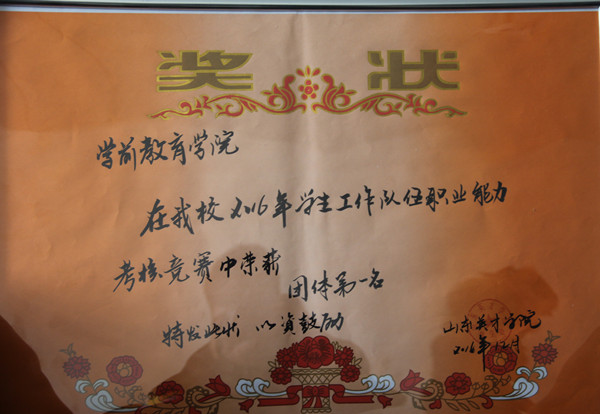 奖状
学前教育学院
在我校2016年学生工作队伍职业能力
考核竞赛中荣获
团体第一名
特发此状 以资鼓励
山东英才学院
2016年12月